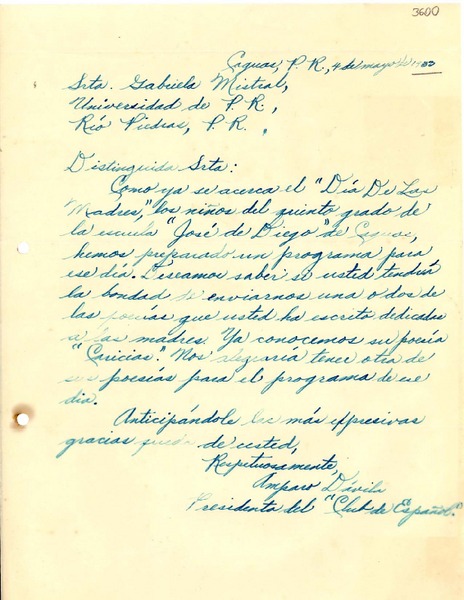 3600
Caguas, P. R., 4 de mayo de 1933
Srta. Gabriela Mistral,
Universidad de P. R.,
Río Piedras, P. R.
Distinguida Srta:
Como ya se acerca el "Día De Las
Madres," los niños del quinto grado de
la escuela "José de Diego" de Caguas,
hemos preparado un programa para
ese día. Deseamos saber si usted tendrá
la bondad de enviarnos una o dos de
las poesías que usted ha escrito dedicadas
a las madres. Ya conocemos su poesía
"Caricias." Nos alegraría tener otra de
sus poesías para el programa de ese
día.
Anticipándole las más expresivas
gracias quedo de usted,
Respetuosamente,
Amparo Dávila
Presidenta del "Club de Español."